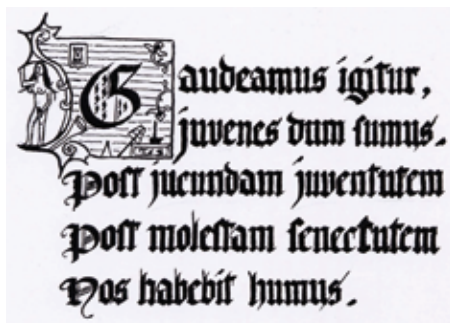 Gaudeamus igitur,
juvenes dum sumus.
Post jucundam juventutem
Post molestam senectutem
Nos habebit humus.